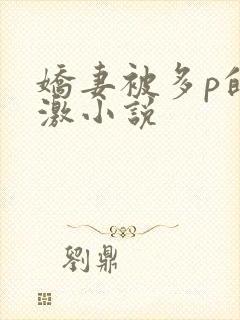 嬌妻被多p的
激小説
劉鼎